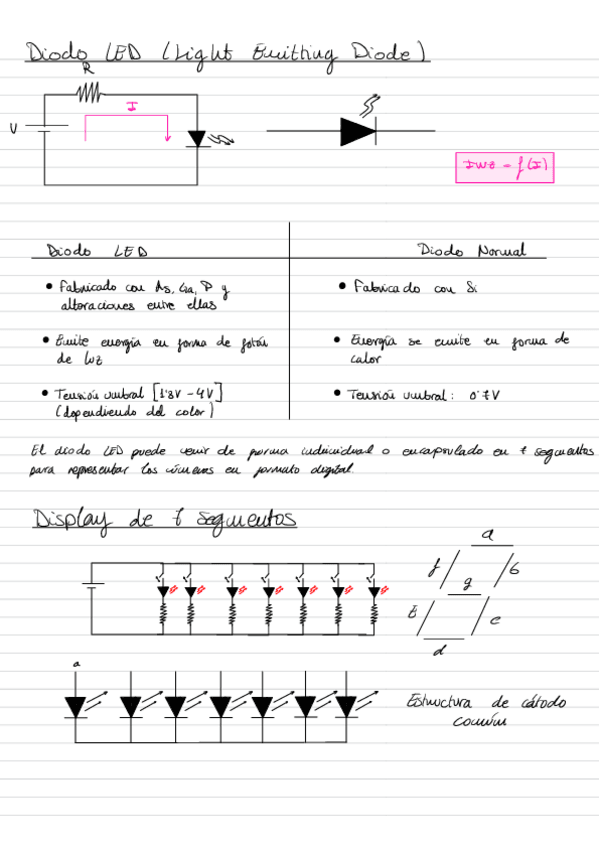 Diodo LED (Light Emitting Diode)
R
I
V
I luz = f(I)
Diodo LED
Diodo Normal
• Fabricado con As, Ga, P y
alteraciones entre ellas
• Fabricado con Si
• Emite energía en forma de fotón
de luz
• Energía se emite en forma de
calor
• Tensión umbral [1'8V - 4V]
(dependiendo del color)
• Tensión umbral: 0'7V
El diodo LED puede venir de forma individual o encapsulado en 7 segmentos
para representar los números en formato digital.
Display de 7 segmentos
a
f
b
g
E
c
d
a
Estructura de cátodo
común